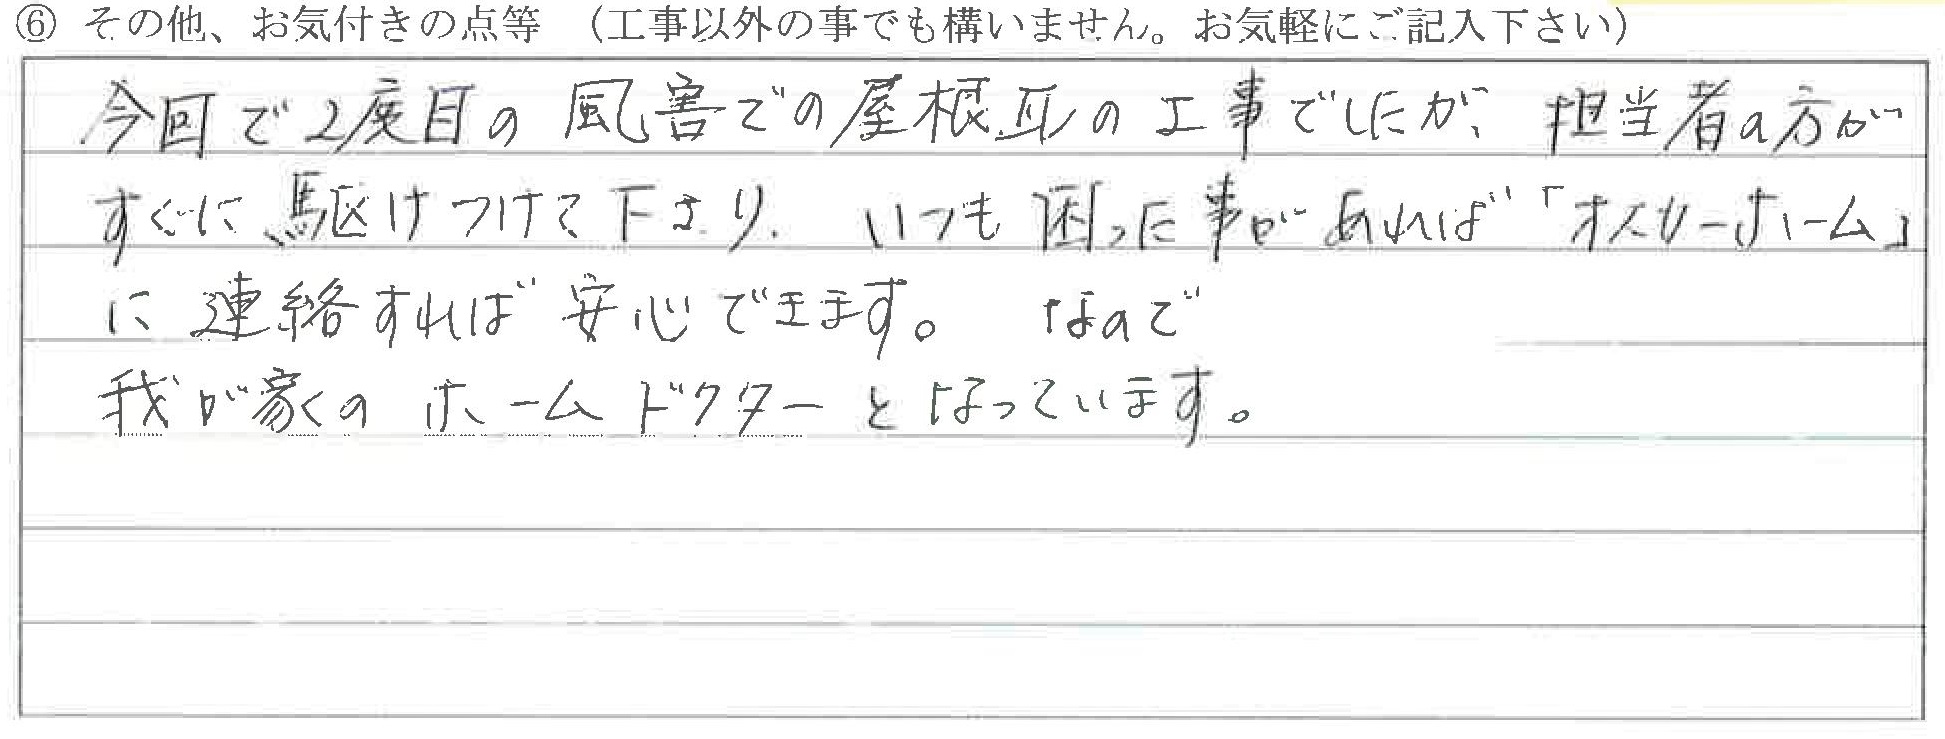 ⑥ その他、お気付きの点等 （工事以外の事でも構いません。お気軽にご記入下さい）
今回で2度目の風害での屋根瓦の工事でしたが、担当者の方が
すぐに駆けつけて下さり、いつも困った事があれば「オスカーホーム」
に連絡すれば安心できます。 なので
我が家のホームドクターとなっています。